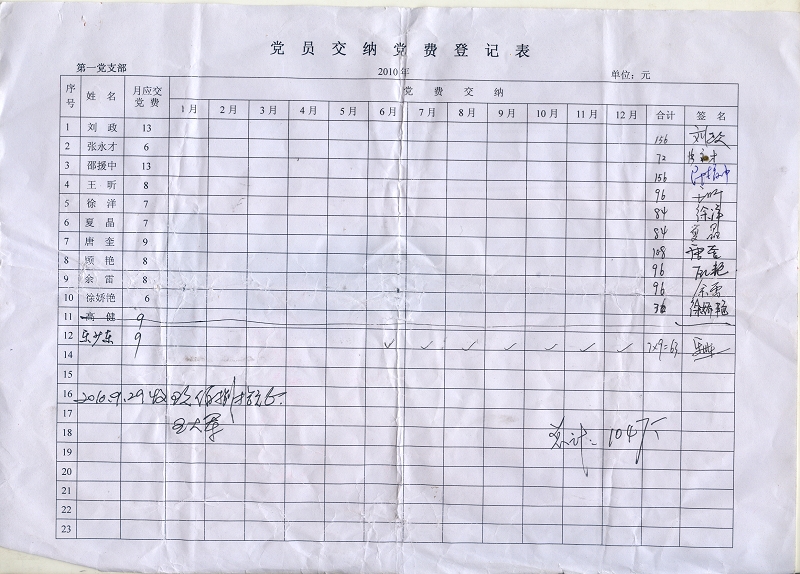 党员交纳党费登记表
第一党支部 2010年 单位：元
序号 姓名 月应交党费 党费交纳
1月 2月 3月 4月 5月 6月 7月 8月 9月 10月 11月 12月 合计 签名
1 刘政 13 156 刘政
2 张永才 6 72
3 邵援中 13 156 邵援中
4 王昕 8 96 王昕
5 徐洋 7 84 徐洋
6 夏晶 7 84 夏晶
7 唐奎 9 108 唐奎
8 顾艳 8 96 顾艳
9 余雷 8 96 余雷
10 徐娇艳 6 36 徐娇艳
11 高健 9
12 9 ✓ ✓ ✓ ✓ ✓ ✓ ✓ 7×9=63
14
15
16 2010.9.29收
17
18 总计：1047
19
20
21
22
23